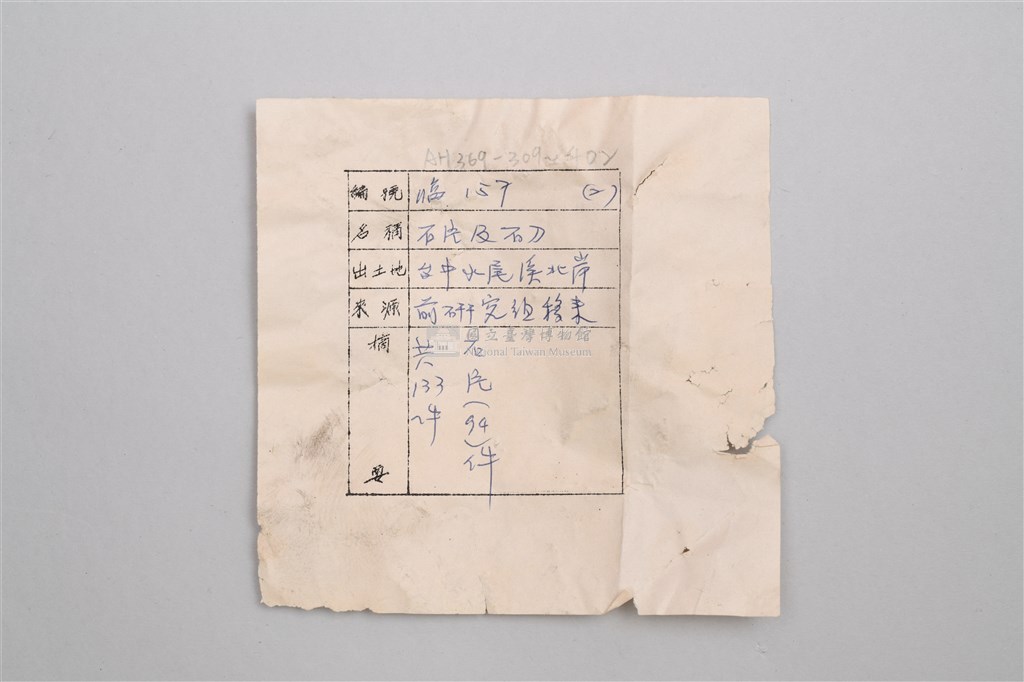 AH369-309~402
編號 臨157 (二)
名稱 石片及石刀
出土地 台中水尾溪北岸
來源 前研究組移来
摘要
石片(94)件
共133件
國立臺灣博物館
National Taiwan Museum